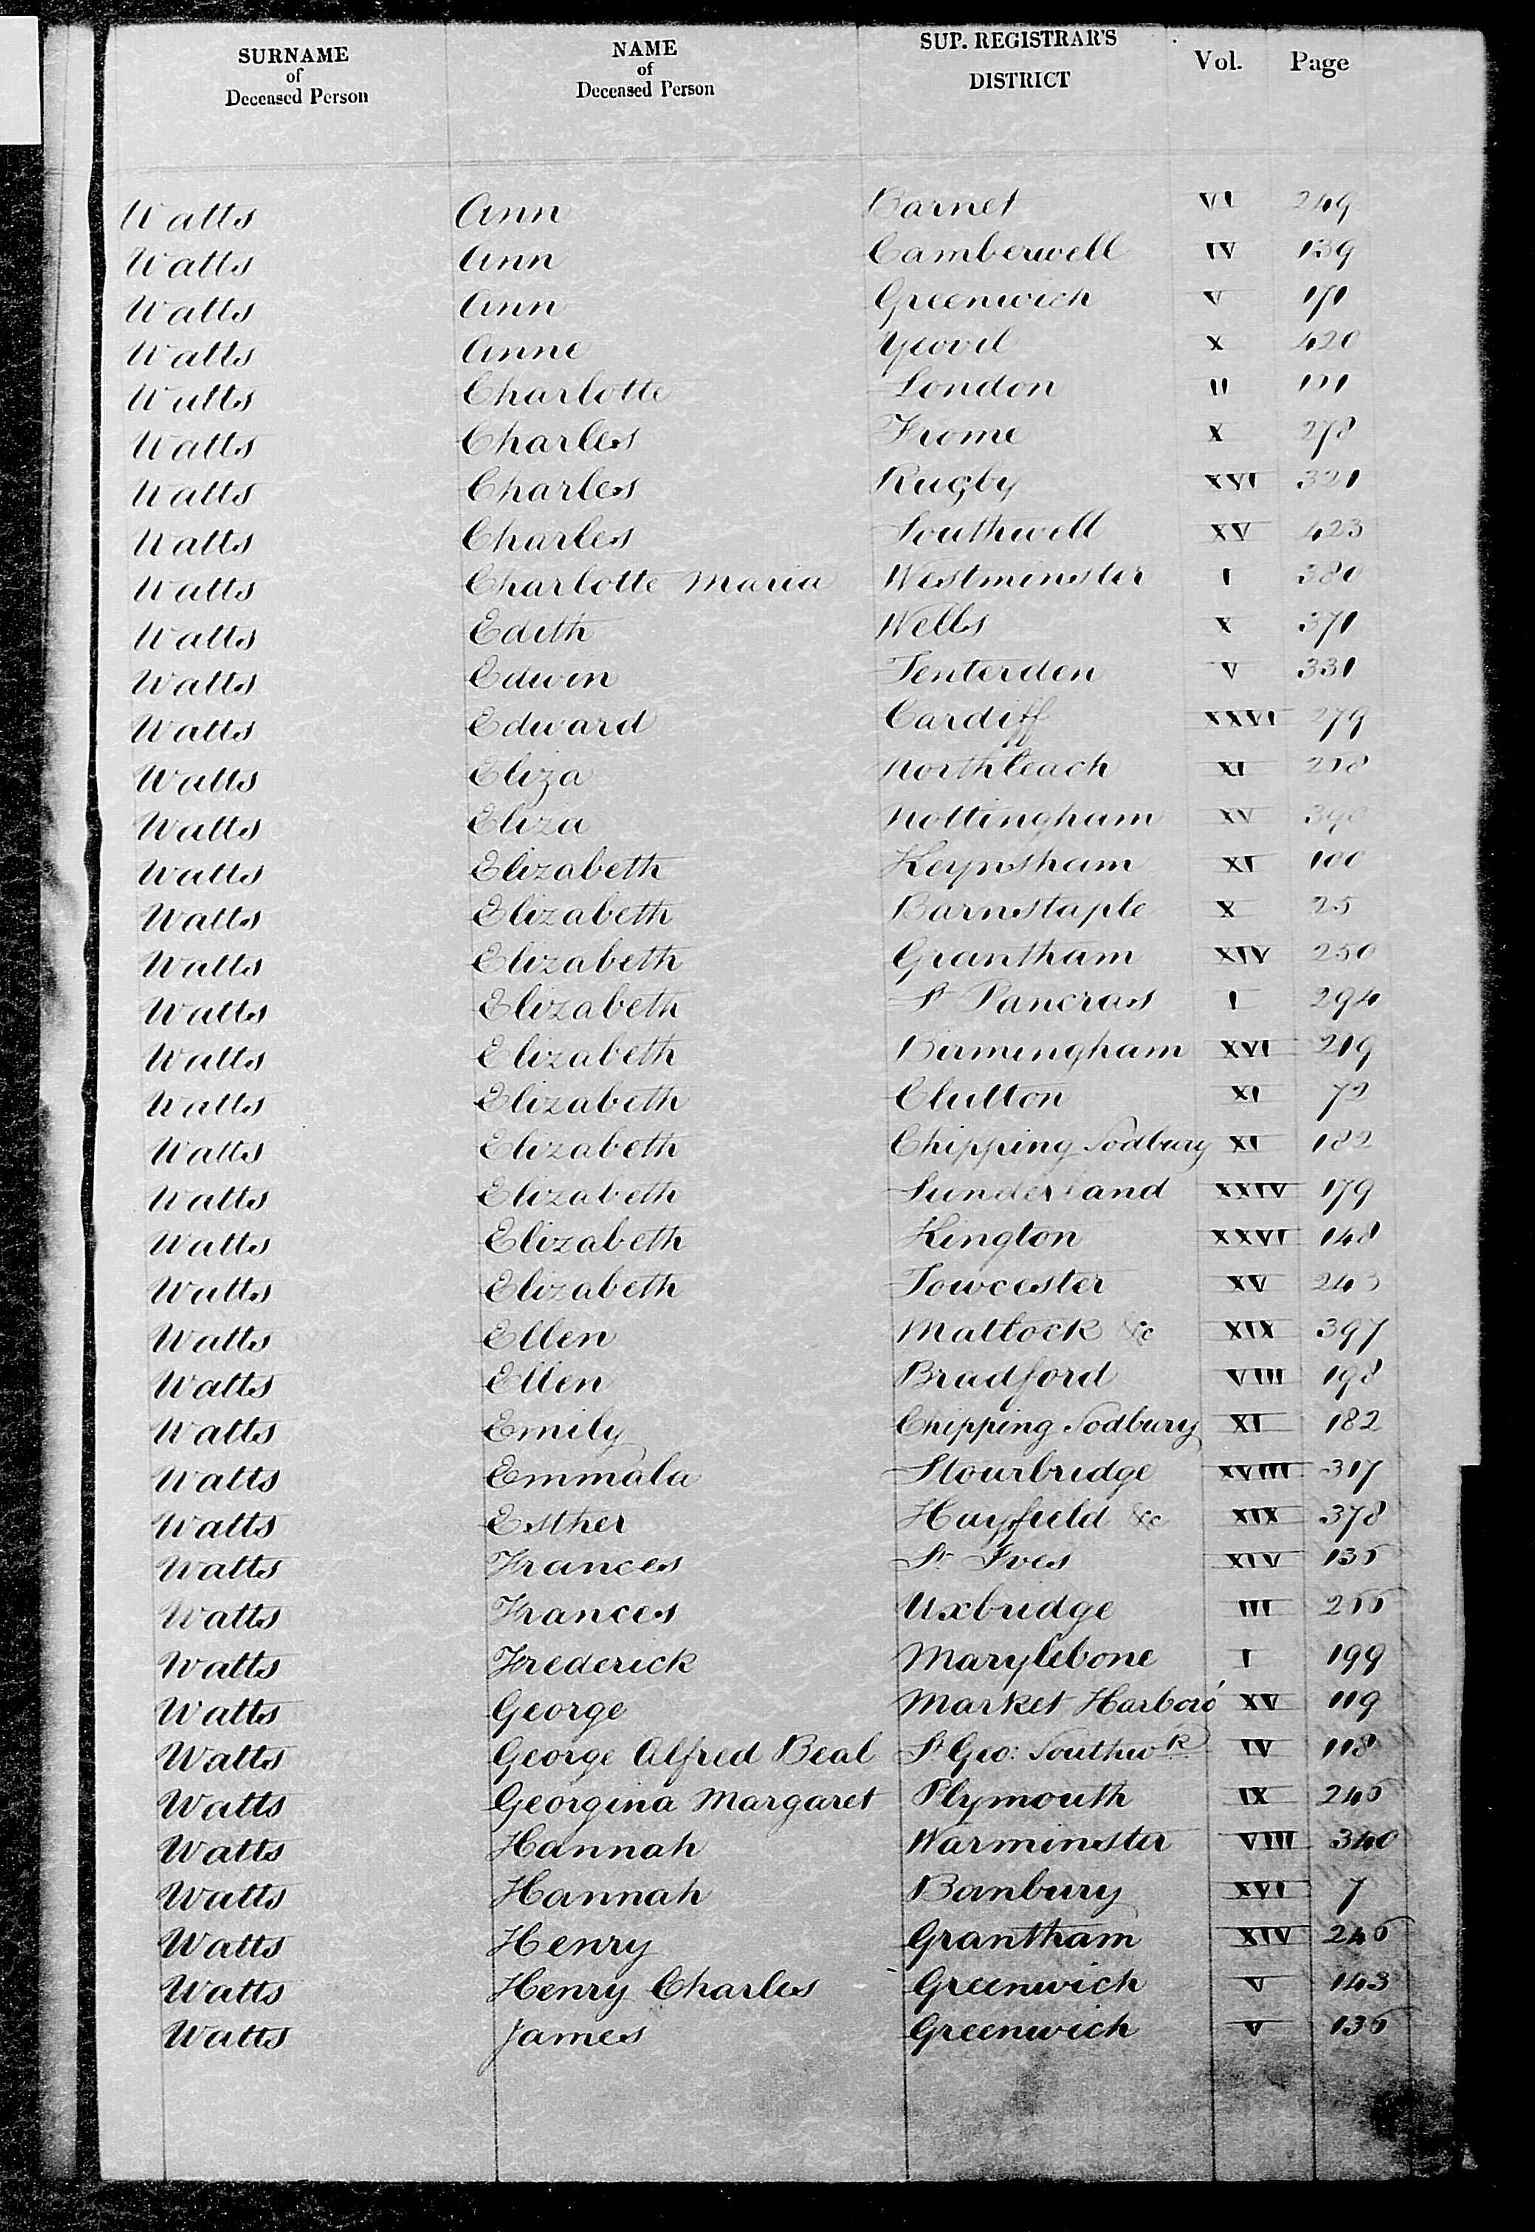 SURNAME of Deceased Person NAME of Deceased Person SUP. REGISTRAR'S DISTRICT Vol. Page
Watts Ann Barnet VI 249
Watts Ann Camberwell IV 139
Watts Ann Greenwich V 171
Watts Anne Yeovil X 420
Watts Charlotte London II 111
Watts Charles Frome X 278
Watts Charles Rugby XVI 321
Watts Charles Southwell XV 423
Watts Charlotte Maria Westminster I 380
Watts Edith Wells X 371
Watts Edwin Tenterden V 331
Watts Edward Cardiff XXVI 279
Watts Eliza Northleach XI 218
Watts Eliza Nottingham XV 390
Watts Elizabeth Keynsham XI 100
Watts Elizabeth Barnstaple X 25
Watts Elizabeth Grantham XIV 250
Watts Elizabeth St Pancras I 294
Watts Elizabeth Birmingham XVI 219
Watts Elizabeth Clutton XI 72
Watts Elizabeth Chipping Sodbury XI 182
Watts Elizabeth Sunderland XXIV 179
Watts Elizabeth Kington XXVI 148
Watts Elizabeth Towcester XV 243
Watts Ellen Matlock &c XIX 397
Watts Ellen Bradford VIII 198
Watts Emily Chipping Sodbury XI 182
Watts Emmala Stourbridge XVIII 317
Watts Esther Hayfield &c XIX 378
Watts Frances St Ives XIV 135
Watts Frances Uxbridge III 255
Watts Frederick Marylebone I 199
Watts George Market Harboro' XV 119
Watts George Alfred Beal St Geo: Southwk IV 118
Watts Georgina Margaret Plymouth IX 245
Watts Hannah Warminster VIII 340
Watts Hannah Banbury XVI 7
Watts Henry Grantham XIV 245
Watts Henry Charles Greenwich V 143
Watts James Greenwich V 135